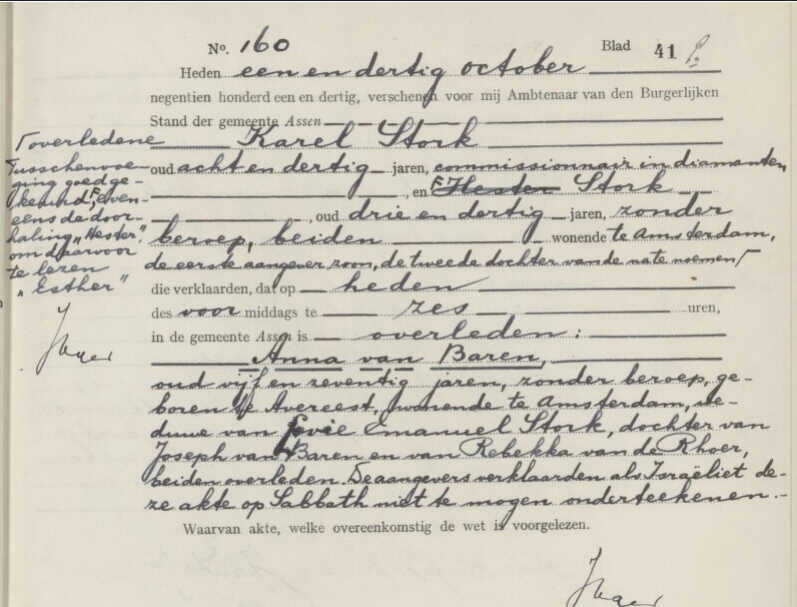 No. 160
Blad 41
Heden een en dertig october
negentien honderd een en dertig, verscheen voor mij Ambtenaar van den Burgerlijken
Stand der gemeente Assen
Karel Stork
oud acht en dertig jaren, commissionnair in diamanten,
, en Hester Stork
, oud drie en dertig jaren, zonder
beroep, beiden wonende te Amsterdam,
de eerste aangever zoon, de tweede dochter van de na te noemen
die verklaarden, dat op heden
des voor middags te zes uren,
in de gemeente Assen is overleden:
Anna van Baren,
oud vijf en zeventig jaren, zonder beroep, ge-
boren te Avereest, wonende te Amsterdam, we-
duwe van Emanuel Stork, dochter van
Joseph van Baren en van Rebekka van de Rhoer,
beiden overleden. De aangevers verklaarden als Israëliet de-
ze akte op Sabbath niet te mogen onderteekenen.-
Waarvan akte, welke overeenkomstig de wet is voorgelezen.
overledene
Tusschenvoe-
ging goedge-
keurd, even-
eens de door-
haling "Hester"
om daarvoor
te lezen
"Esther"